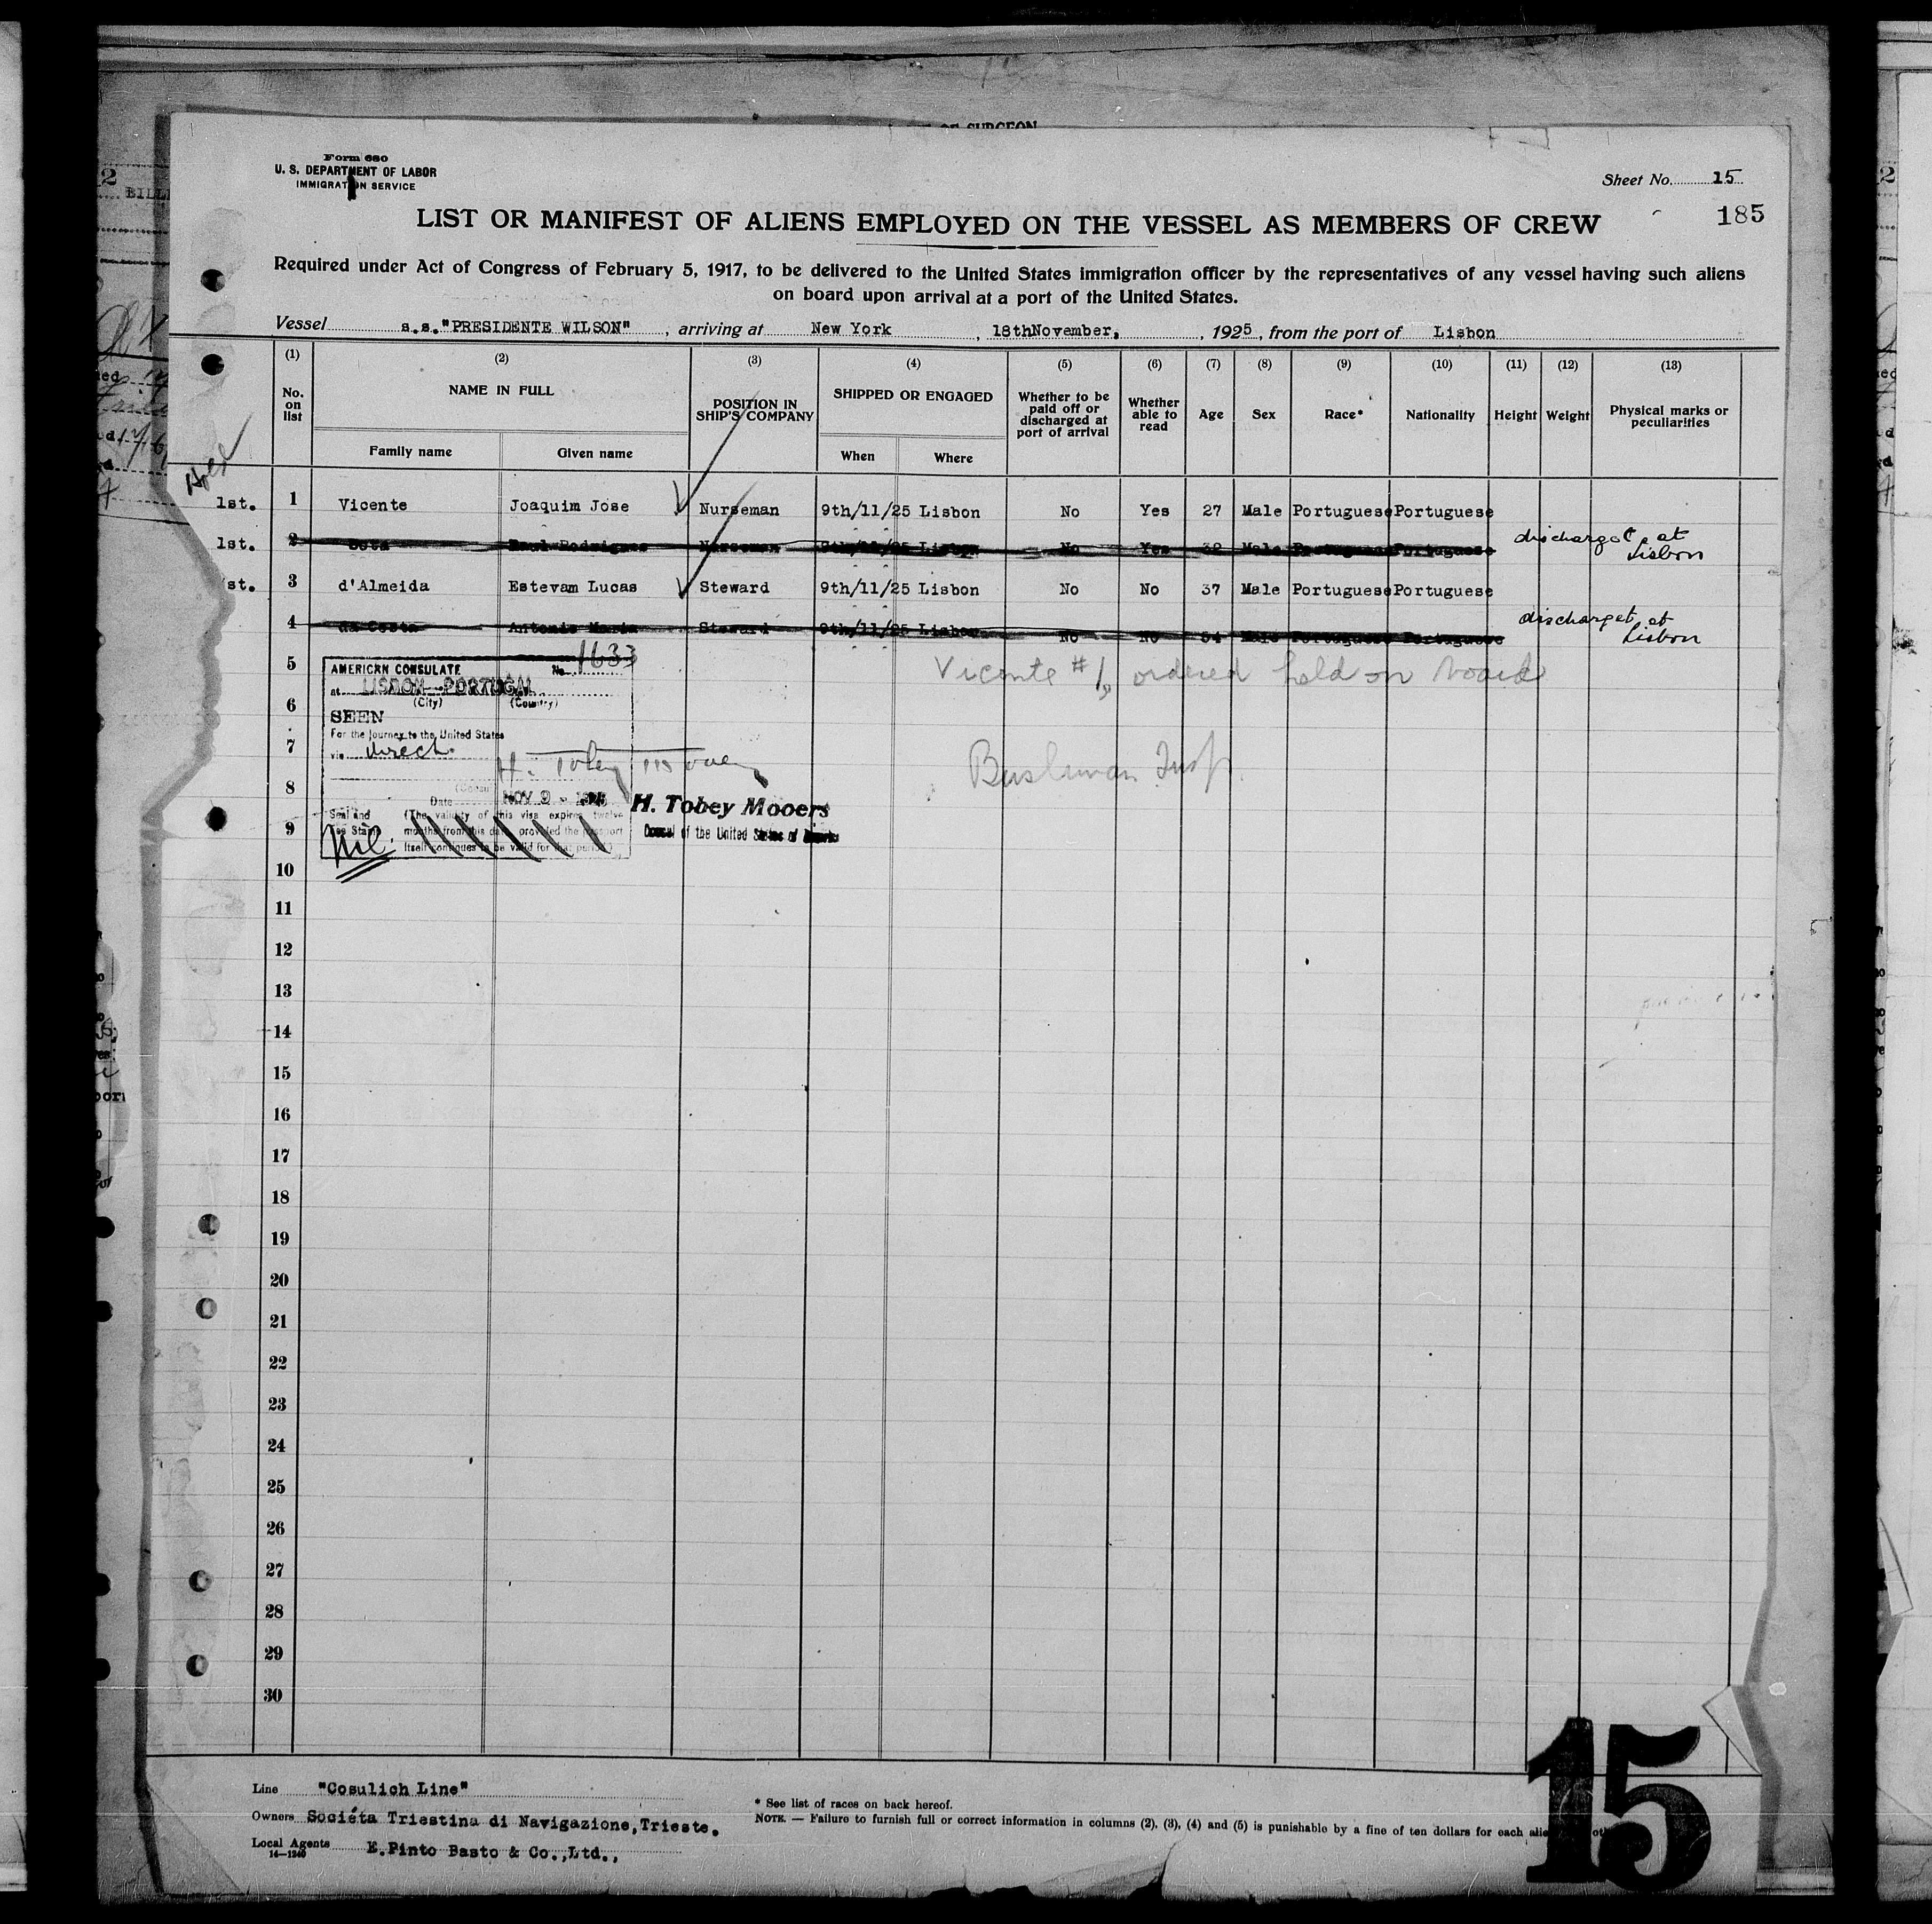 OF SURGEON
Form 680
U. S. DEPARTMENT OF LABOR
IMMIGRATION SERVICE
Sheet No. 15
185
LIST OR MANIFEST OF ALIENS EMPLOYED ON THE VESSEL AS MEMBERS OF CREW
Required under Act of Congress of February 5, 1917, to be delivered to the United States immigration officer by the representatives of any vessel having such aliens
on board upon arrival at a port of the United States.
Vessel s.s."PRESIDENTE WILSON", arriving at New York, 18thNovember, , 1925, from the port of Lisbon
(1) (2) (3) (4) (5) (6) (7) (8) (9) (10) (11) (12) (13)
No. on list NAME IN FULL POSITION IN SHIP'S COMPANY SHIPPED OR ENGAGED Whether to be paid off or discharged at port of arrival Whether able to read Age Sex Race* Nationality Height Weight Physical marks or peculiarities
Family name Given name When Where
Held
1st. 1 Vicente Joaquim Jose Nurseman 9th/11/25 Lisbon No Yes 27 Male Portuguese Portuguese
1st. 2 Raul Rodrigues Nurseman 9th/11/25 Lisbon No Yes Male Portuguese Portuguese discharged at Lisbon
st. 3 d'Almeida Estevam Lucas Steward 9th/11/25 Lisbon No No 37 Male Portuguese Portuguese
4 da Costa Antonio Maria Steward 9th/11/25 Lisbon No No Male Portuguese Portuguese discharged at Lisbon
5 Vicente #1, ordered held on board
AMERICAN CONSULATE No. 1633
at LISBON - PORTUGAL
(City) (Country)
6
SEEN
For the journey to the United States
7
via direct
H. Tobey Mooers
Insp.
8
Date NOV 9 - 1925
H. Tobey Mooers
Consul of the United States of America
Seal and
Fee Stamp
(The validity of this visa expires twelve
months from this date provided the passport
itself continues to be valid for that period.)
Nil
9
10
11
12
13
14
15
16
17
18
19
20
21
22
23
24
25
26
27
28
29
30
Line "Cosulich Line"
Owners Sociéta Triestina di Navigazione,Trieste.
Local Agents E.Pinto Basto & Co.,Ltd.,
14—1240
* See list of races on back hereof.
NOTE. — Failure to furnish full or correct information in columns (2), (3), (4) and (5) is punishable by a fine of ten dollars for each
15